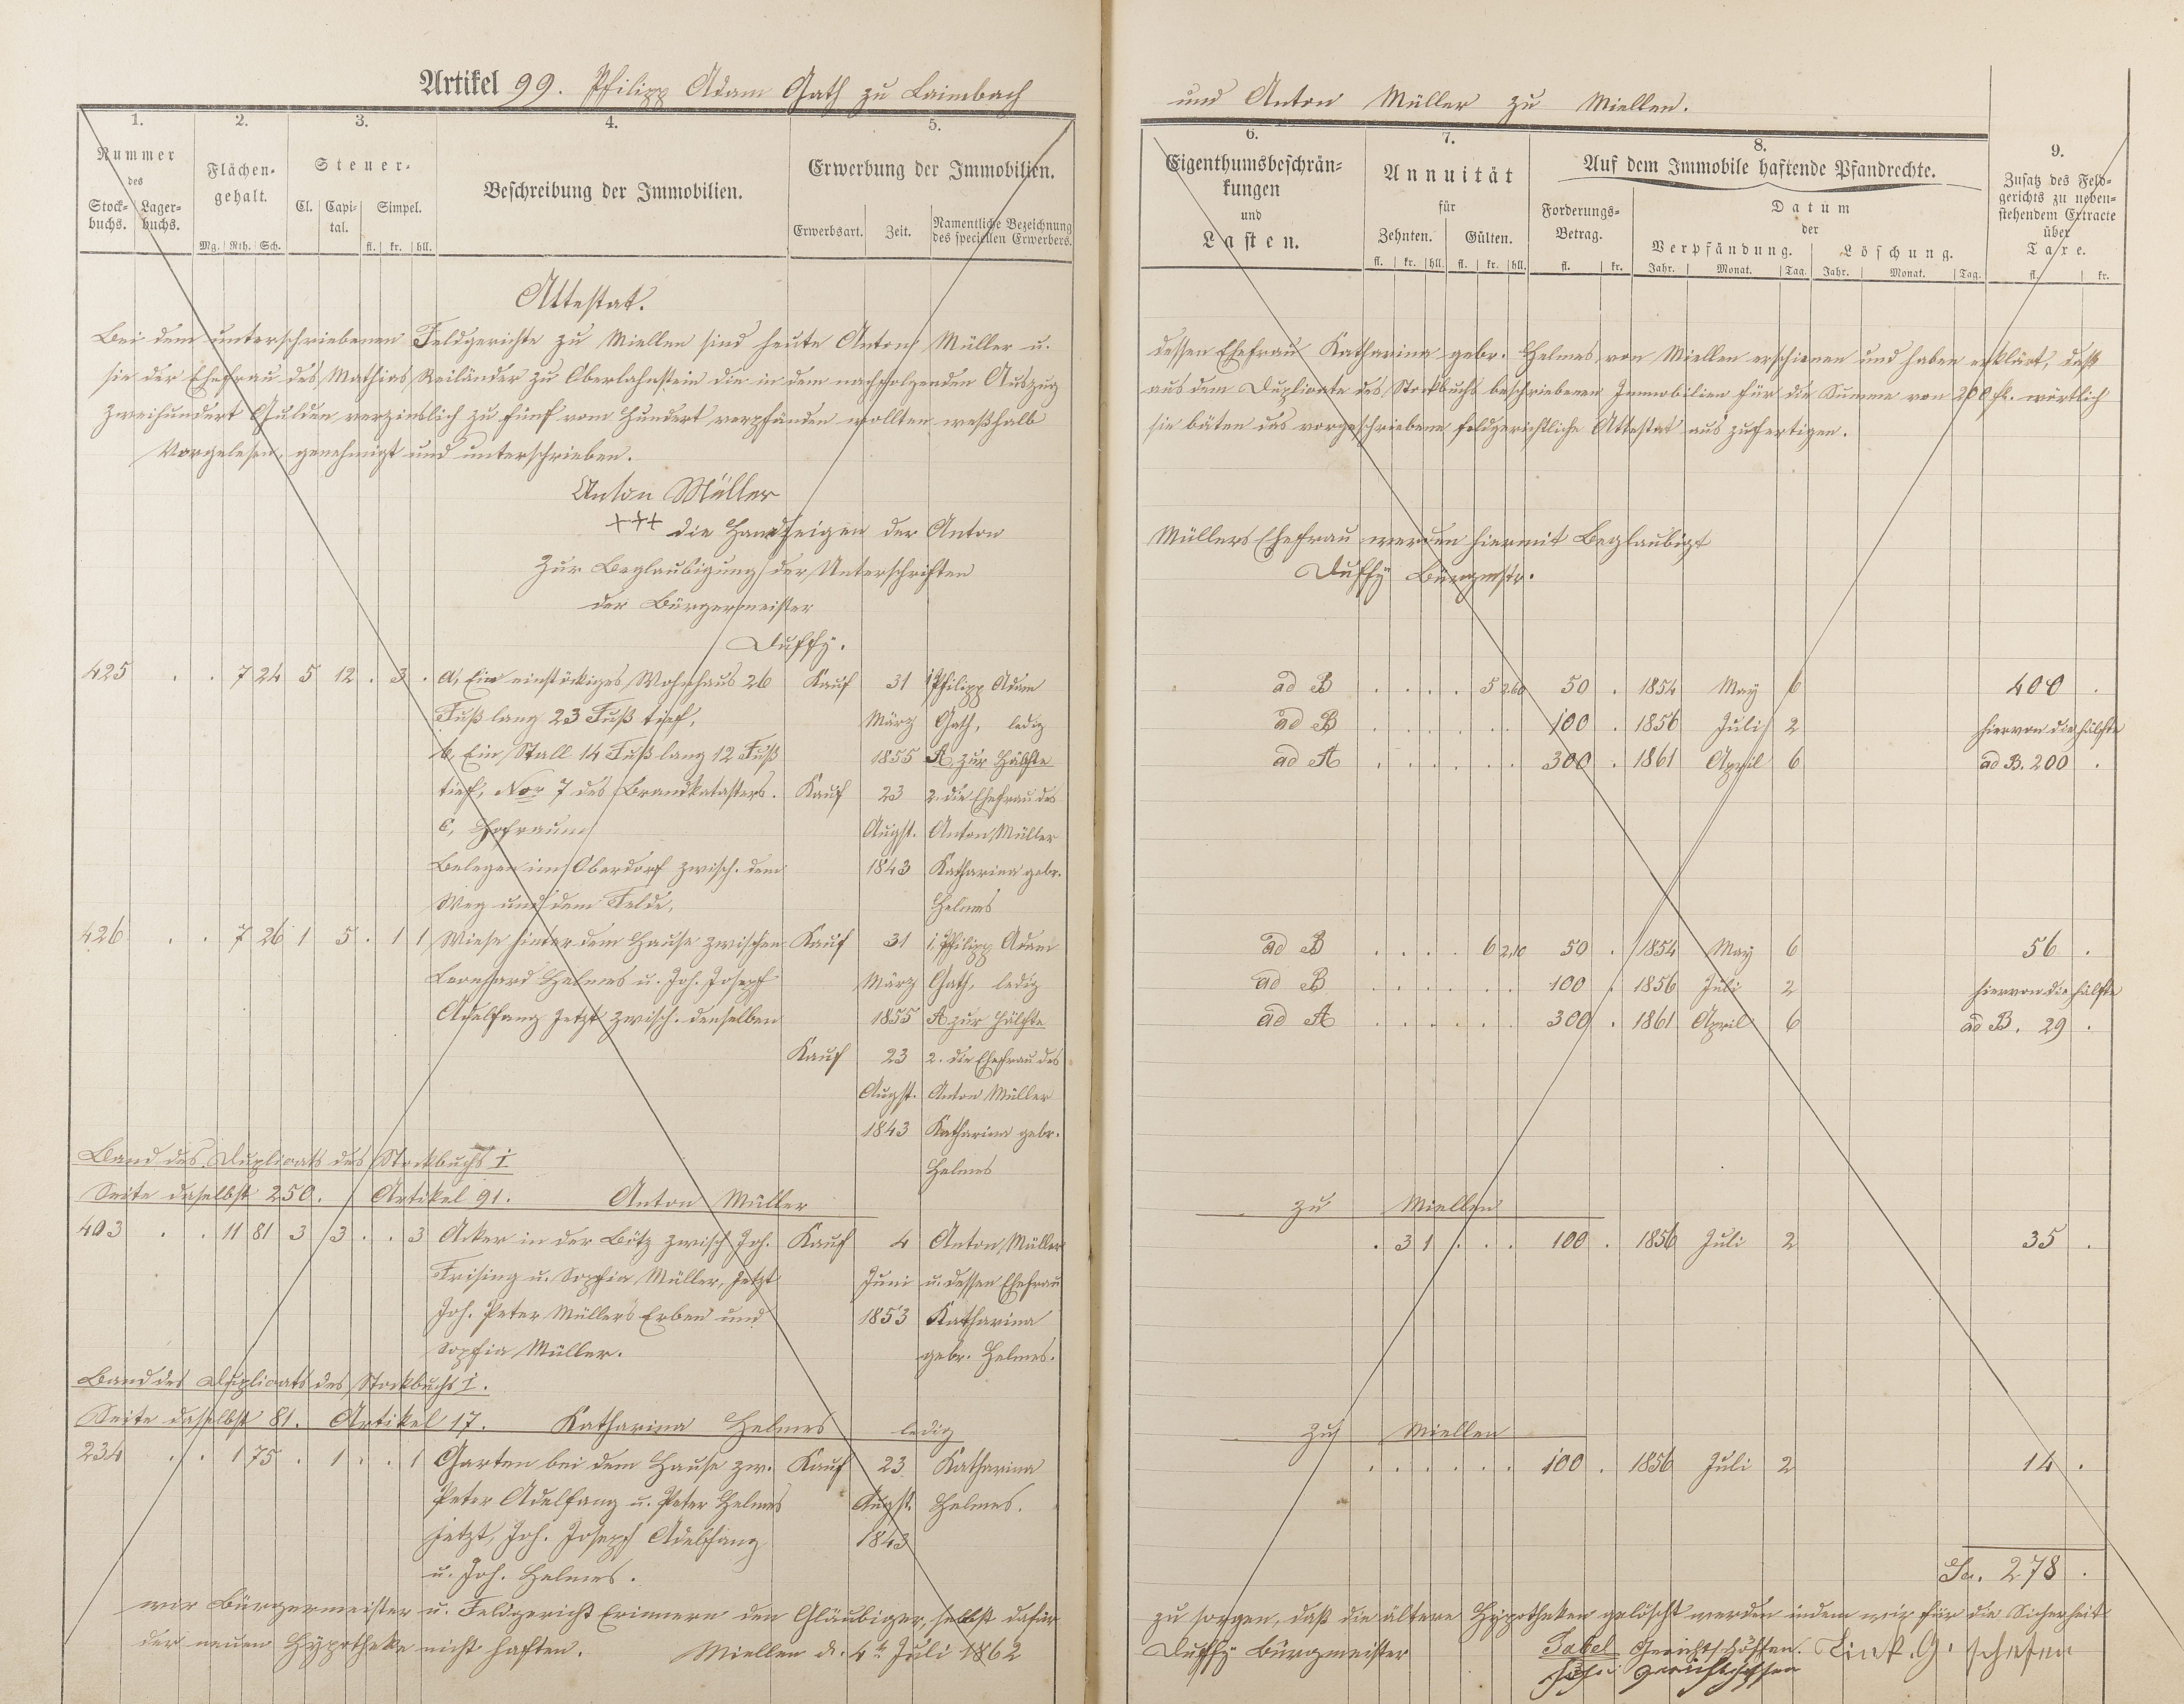 Artikel 99. Philipp Adam Gath zu Laimbach
und Anton Müller zu Miellen.
1. 2. 3. 4. 5.
Nummer des
Stock-buchs. Lager-buchs.
Flächen-gehalt.
Mg. Rth. Sch.
Steuer-
Cl. Capi-tal. Simpel.
fl. kr. hll.
Beschreibung der Immobilien.
Erwerbung der Immobilien.
Erwerbsart. Zeit. Namentliche Bezeichnung des speciellen Erwerbers.
6. 7. 8. 9.
Eigenthumsbeschrän-
kungen
und
Lasten.
Annuität
für
Zehnten. Gülten.
fl. kr. hll. fl. kr. hll.
Auf dem Immobile haftende Pfandrechte.
Forderungs-Betrag.
fl. kr.
Datum
der
Verpfändung. Löschung.
Jahr. Monat. Tag. Jahr. Monat. Tag.
Zusatz des Feld-
gerichts zu neben-
stehendem Extracte
über
Taxe.
fl. kr.
Attestat.
Bei dem unterschriebenen Feldgerichte zu Miellen sind heute Anton Müller u.
dessen Ehefrau Katharina gebr. Helmes von Miellen erschienen und haben erklärt, daß
sie der Ehefrau des Mathias Reiländer zu Oberlahnstein die in dem nachfolgenden Auszug
aus dem Duplicate des Stockbuchs beschriebenen Immobilien für die Summe von 200 fl. wörtlich
Zweihundert Gulden verzinslich zu fünf vom Hundert verpfänden wollten, weßhalb
sie bäten das vorgeschriebene feldgerichtliche Attestat auszufertigen.
Vorgelesen, genehmigt und unterschrieben.
Anton Müller
+++ die Handzeigen der Anton
Müllers Ehefrau werden hiermit Beglaubigt
Duffy Bürgmstr.
Zur Beglaubigung der Unterschriften
der Bürgermeister
Duffy.
425 . . 7 24 5 12 . 3 . a, Ein einstöckiges Wohnhaus 26 Kauf 31 1 Philipp Adam
Fuß lang 23 Fuß tief, März Gath, ledig
b, Ein Stall 14 Fuß lang 12 Fuß 1855 A, zur Hälfte
tief, Nor 7 des Brandkatasters. Kauf 23 2. die Ehefrau des
c, Hofraum Augst. Anton Müller
Belegen im Oberdorf zwisch. dem 1843 Katharina gebr.
Weg und dem Felde, Helmes
ad B . . . . 5 2.60 50 . 1854 May 6 400 .
ad B . . . . . . 100 . 1856 Juli 2 hiervon die Hälfte
ad A . . . . . . 300 . 1861 April 6 ad B. 200 .
426 . . 7 26 1 5 . 1 1 Wiese hinter dem Hause zwischen Kauf 31 1. Philipp Adam
Leonhard Helmes u. Joh. Joseph März Gath, ledig
Adelfang jetzt zwisch. denselben 1855 A zur Hälfte
Kauf 23 2. die Ehefrau des
Augst. Anton Müller
1843 Katharina gebr.
Helmes
ad B . . . . 6 2.10 50 . 1854 May 6 56 .
ad B . . . . . . 100 . 1856 Juli 2 hiervon die Hälfte
ad A . . . . . . 300 . 1861 April 6 ad B. 29 .
Band des Duplicats des Stockbuchs I
Seite daselbst 250. Artikel 91. Anton Müller zu Miellen
403 . . 11 81 3 3 . . 3 Acker in der Bötz zwisch. Joh. Kauf 4 Anton Müller
Frising u. Sophia Müller, jetzt Juni u. dessen Ehefrau
Joh. Peter Müllers Erben und 1853 Katharina
Sophia Müller. gebr. Helmes.
. 3 1 . . . 100 . 1856 Juli 2 35 .
Band des Duplicats des Stockbuchs I.
Seite daselbst 81. Artikel 17. Katharina Helmes ledig zu Miellen
234 . . 1 75 . 1 . . 1 Garten bei dem Hause zw. Kauf 23 Katharina
Peter Adelfang u. Peter Helmes Augst. Helmes.
jetzt, Joh. Joseph Adelfang 1843
u. Joh. Helmes.
. . . . . . 100 . 1856 Juli 2 14 .
Sa. 278 .
wir Bürgermeister u. Feldgericht Erinnern den Gläubiger, selbst dafür
zu sorgen, daß die ältere Hypotheken gelöscht werden indem wir für die Sicherheit
der neuen Hypotheke nicht haften. Miellen d. 4t Juli 1862
Duffy Bürgmeister Gerichtschöffen. G. schefen